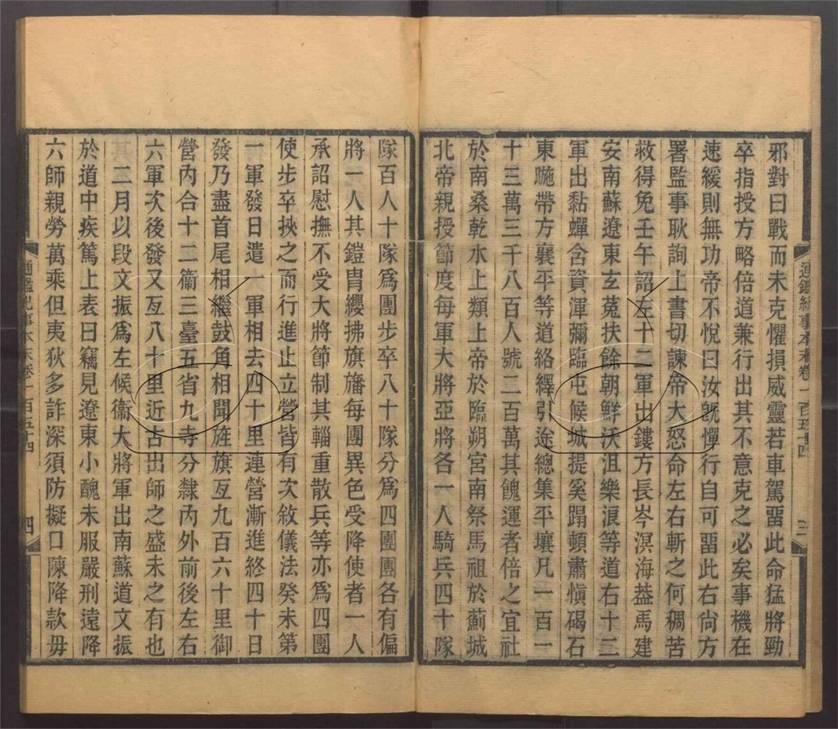 邪對曰戰而未克懼損威靈若車駕畱此命猛將勁
卒指授方略倍道兼行出其不意克之必矣事機在
速緩則無功帝不悅曰汝旣憚行自可畱此右尙方
署監事耿詢上書切諫帝大怒命左右斬之何稠苦
救得免壬午詔左十二軍出鏤方長岑溟海葢馬建
安南蘇遼東玄菟扶餘朝鮮沃沮樂浪等道右十二
軍出黏蟬含資渾彌臨屯候城提奚蹋頓肅愼碣石
東暆帶方襄平等道絡繹引途總集平壤凡一百一
十三萬三千八百人號二百萬其餽運者倍之宜社
於南桑乾水上類上帝於臨朔宮南祭馬祖於薊城
北帝親授節度每軍大將亞將各一人騎兵四十隊
隊百人十隊爲團步卒八十隊分爲四團團各有偏
將一人其鎧冑纓拂旗旛每團異色受降使者一人
承詔慰撫不受大將節制其輜重散兵等亦爲四團
使步卒挾之而行進止立營皆有次敘儀法癸未第
一軍發日遣一軍相去四十里連營漸進終四十日
發乃盡首尾相繼鼓角相聞旌旗亙九百六十里御
營內合十二衞三臺五省九寺分隸內外前後左右
六軍次後發又亙八十里近古出師之盛未之有也
二月以段文振爲左候衞大將軍出南蘇道文振
於道中疾篤上表曰竊見遼東小醜未服嚴刑遠降
六師親勞萬乘但夷狄多詐深須防擬口陳降款毋
通鑑紀事本末卷一百五十四
三
通鑑紀事本末卷一百五十四
四